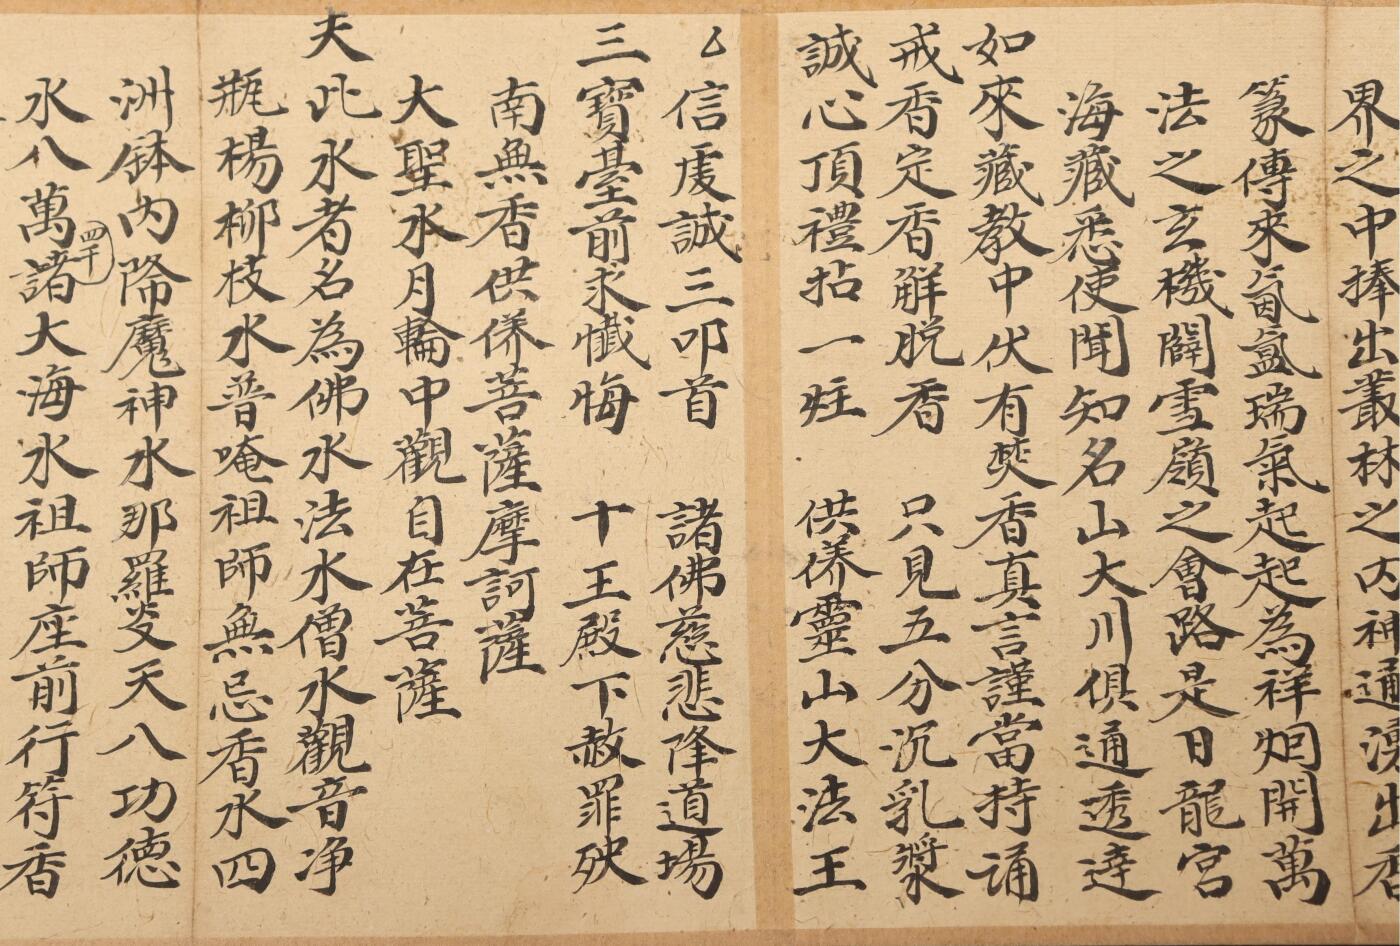 界之中捧出叢林之内神通湧出香
篆傳來氤氳瑞氣起起為祥烟開萬
法之玄機闢雪嶺之會路是日龍宮
海藏悉使聞知名山大川俱通透達
如來藏教中伏有焚香真言謹當持誦
戒香定香解脱香 只見五分沉乳漿
誠心頂禮拈一炷 供养靈山大法王
信虔誠三叩首 諸佛慈悲降道場
三寶臺前求懺悔 十王殿下赦罪殃
南無香供养菩薩摩訶薩
大聖水月輪中觀自在菩薩
夫此水者名為佛水法水僧水觀音净
瓶楊柳枝水普唵祖師無忌香水四
洲鉢内降魔神水那羅炎天八功德
水八萬四千諸大海水祖師座前行符香